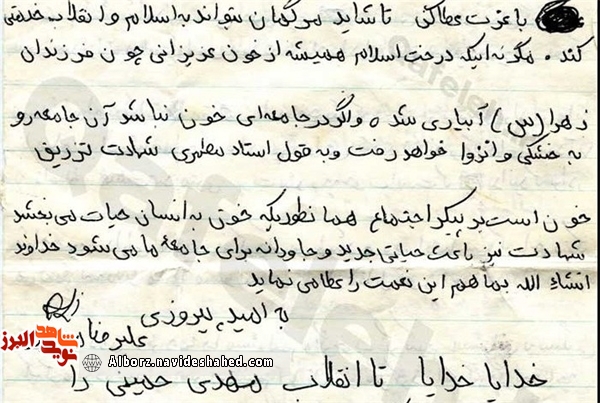 با عزت عطا کن تا شاید مرگمان بتواند به اسلام و انقلاب خدمتی
کند. مگر نه اینکه درخت اسلام همیشه از خون عزیزانی چون فرزندان
زهرا (س) آبیاری شده و اگر در جامعه‌ای خون نباشد آن جامعه رو
به خشکی و انزوا خواهد رفت و به قول استاد مطهری شهادت تزریق
خون است بر پیکر اجتماع همانطوریکه خون به انسان حیات می‌بخشد
شهادت نیز باعث حیاتی جدید و جاودانه برای جامعهٔ ما می‌شود خداوند
انشاء الله بما هم این نعمت را عطا می‌نماید
به امید پیروزی
علیرضا
شاهد
نوید
البرز
Alborz.navideshahed.com
خدایا خدایا تا انقلاب مهدی خمینی را